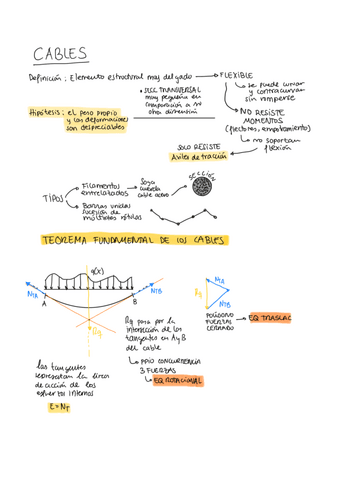 CABLES
Definición: Elemento estructural muy delgado → FLEXIBLE
• SECC TRANSVERSAL
muy pequeña en
comparación a su
otra dimensión
↳ se puede curvar
y contracurvar
sin romperse
Hipótesis: el peso propio
y las deformaciones
son despreciables
NO RESISTE
MOMENTOS
(flectores, empotramiento)
↳ no soportan
flexión
SOLO RESISTE
Axiles de tracción
TIPOS
Filamentos
entrelazados
Soga
cuerda
cable acero
SECCIÓN
Barras unidas
sucesión de
múltiples rótulas
TEOREMA FUNDAMENTAL DE LOS CABLES
q(x)
NTA
NTB
A
B
Rq
Rq
NTA
NTB
POLÍGONO
FUERZAS
CERRADO
EQ TRASLAC
Rq pasa por la
intersección de las
tangentes en A y B
del cable
↳ PPIO CONCURRENCIA
3 FUERZAS
↳ EQ ROTACIONAL
las tangentes
representan la línea
de acción de los
esfuerzos internos
E=NT